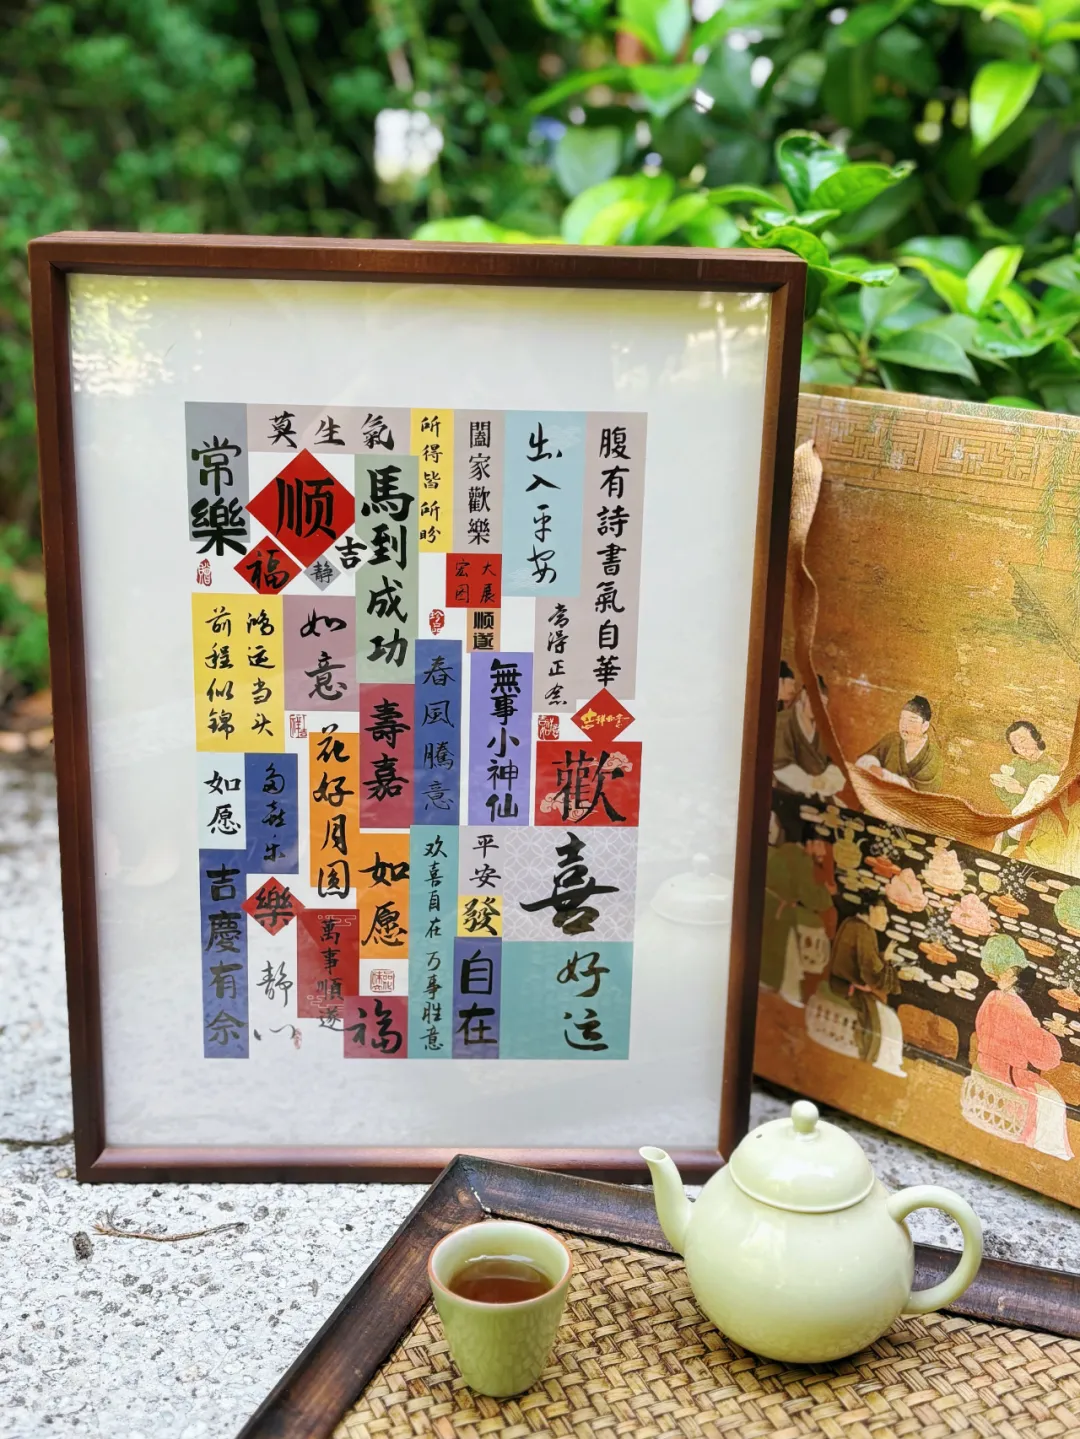 常樂
莫生氣
順
福
吉
靜
馬到成功
所得皆所盼
闔家歡樂
出入平安
腹有詩書氣自華
大展
宏圖
順遂
常得正念
鴻运当头
前程似錦
如意
春風騰意
無事小神仙
歡
喜
壽嘉
花好月圆
如愿
多喜乐
吉慶有余
樂
靜心
萬事順遂
如愿
福
欢喜自在万事胜意
平安
發
自在
好运